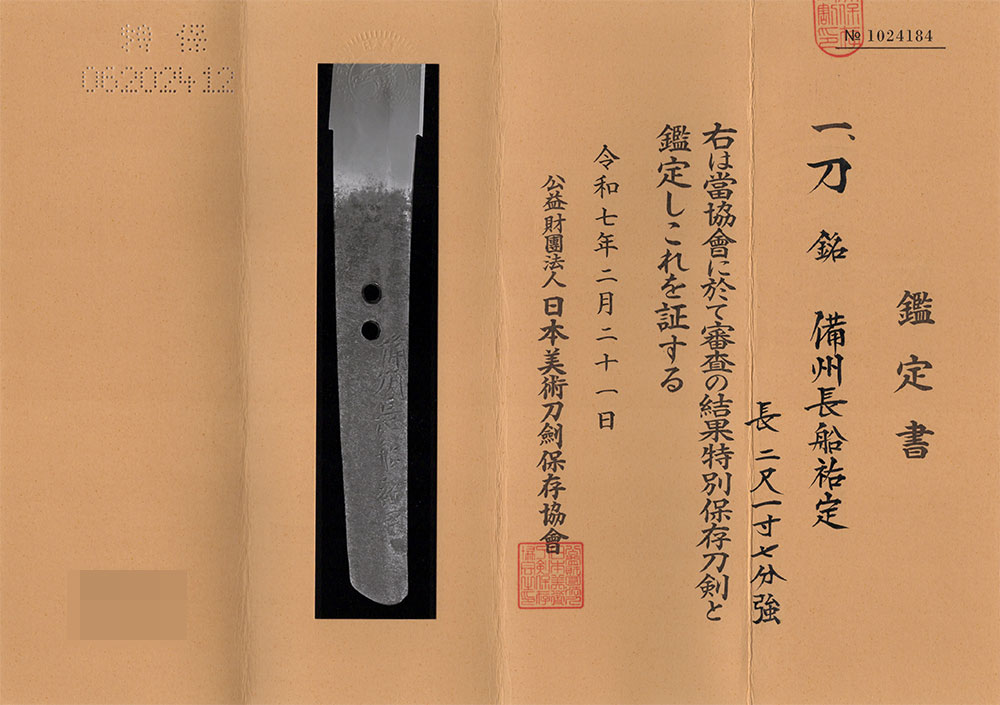 № 1024184
鑑定書
一、刀 銘 備州長船祐定
長 二尺一寸七分強
右は當協會に於て審査の結果特別保存刀剣と
鑑定しこれを証する
令和七年二月二十一日
公益財團法人 日本美術刀劍保存協會
備州長船祐定
特保
06202412